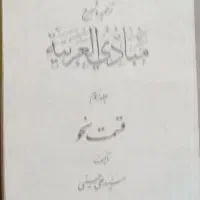 ترجمه و شرح
مبادئ العربیة
جلد چهارم
قسمت نحو
تألیف
سید علی حسینی